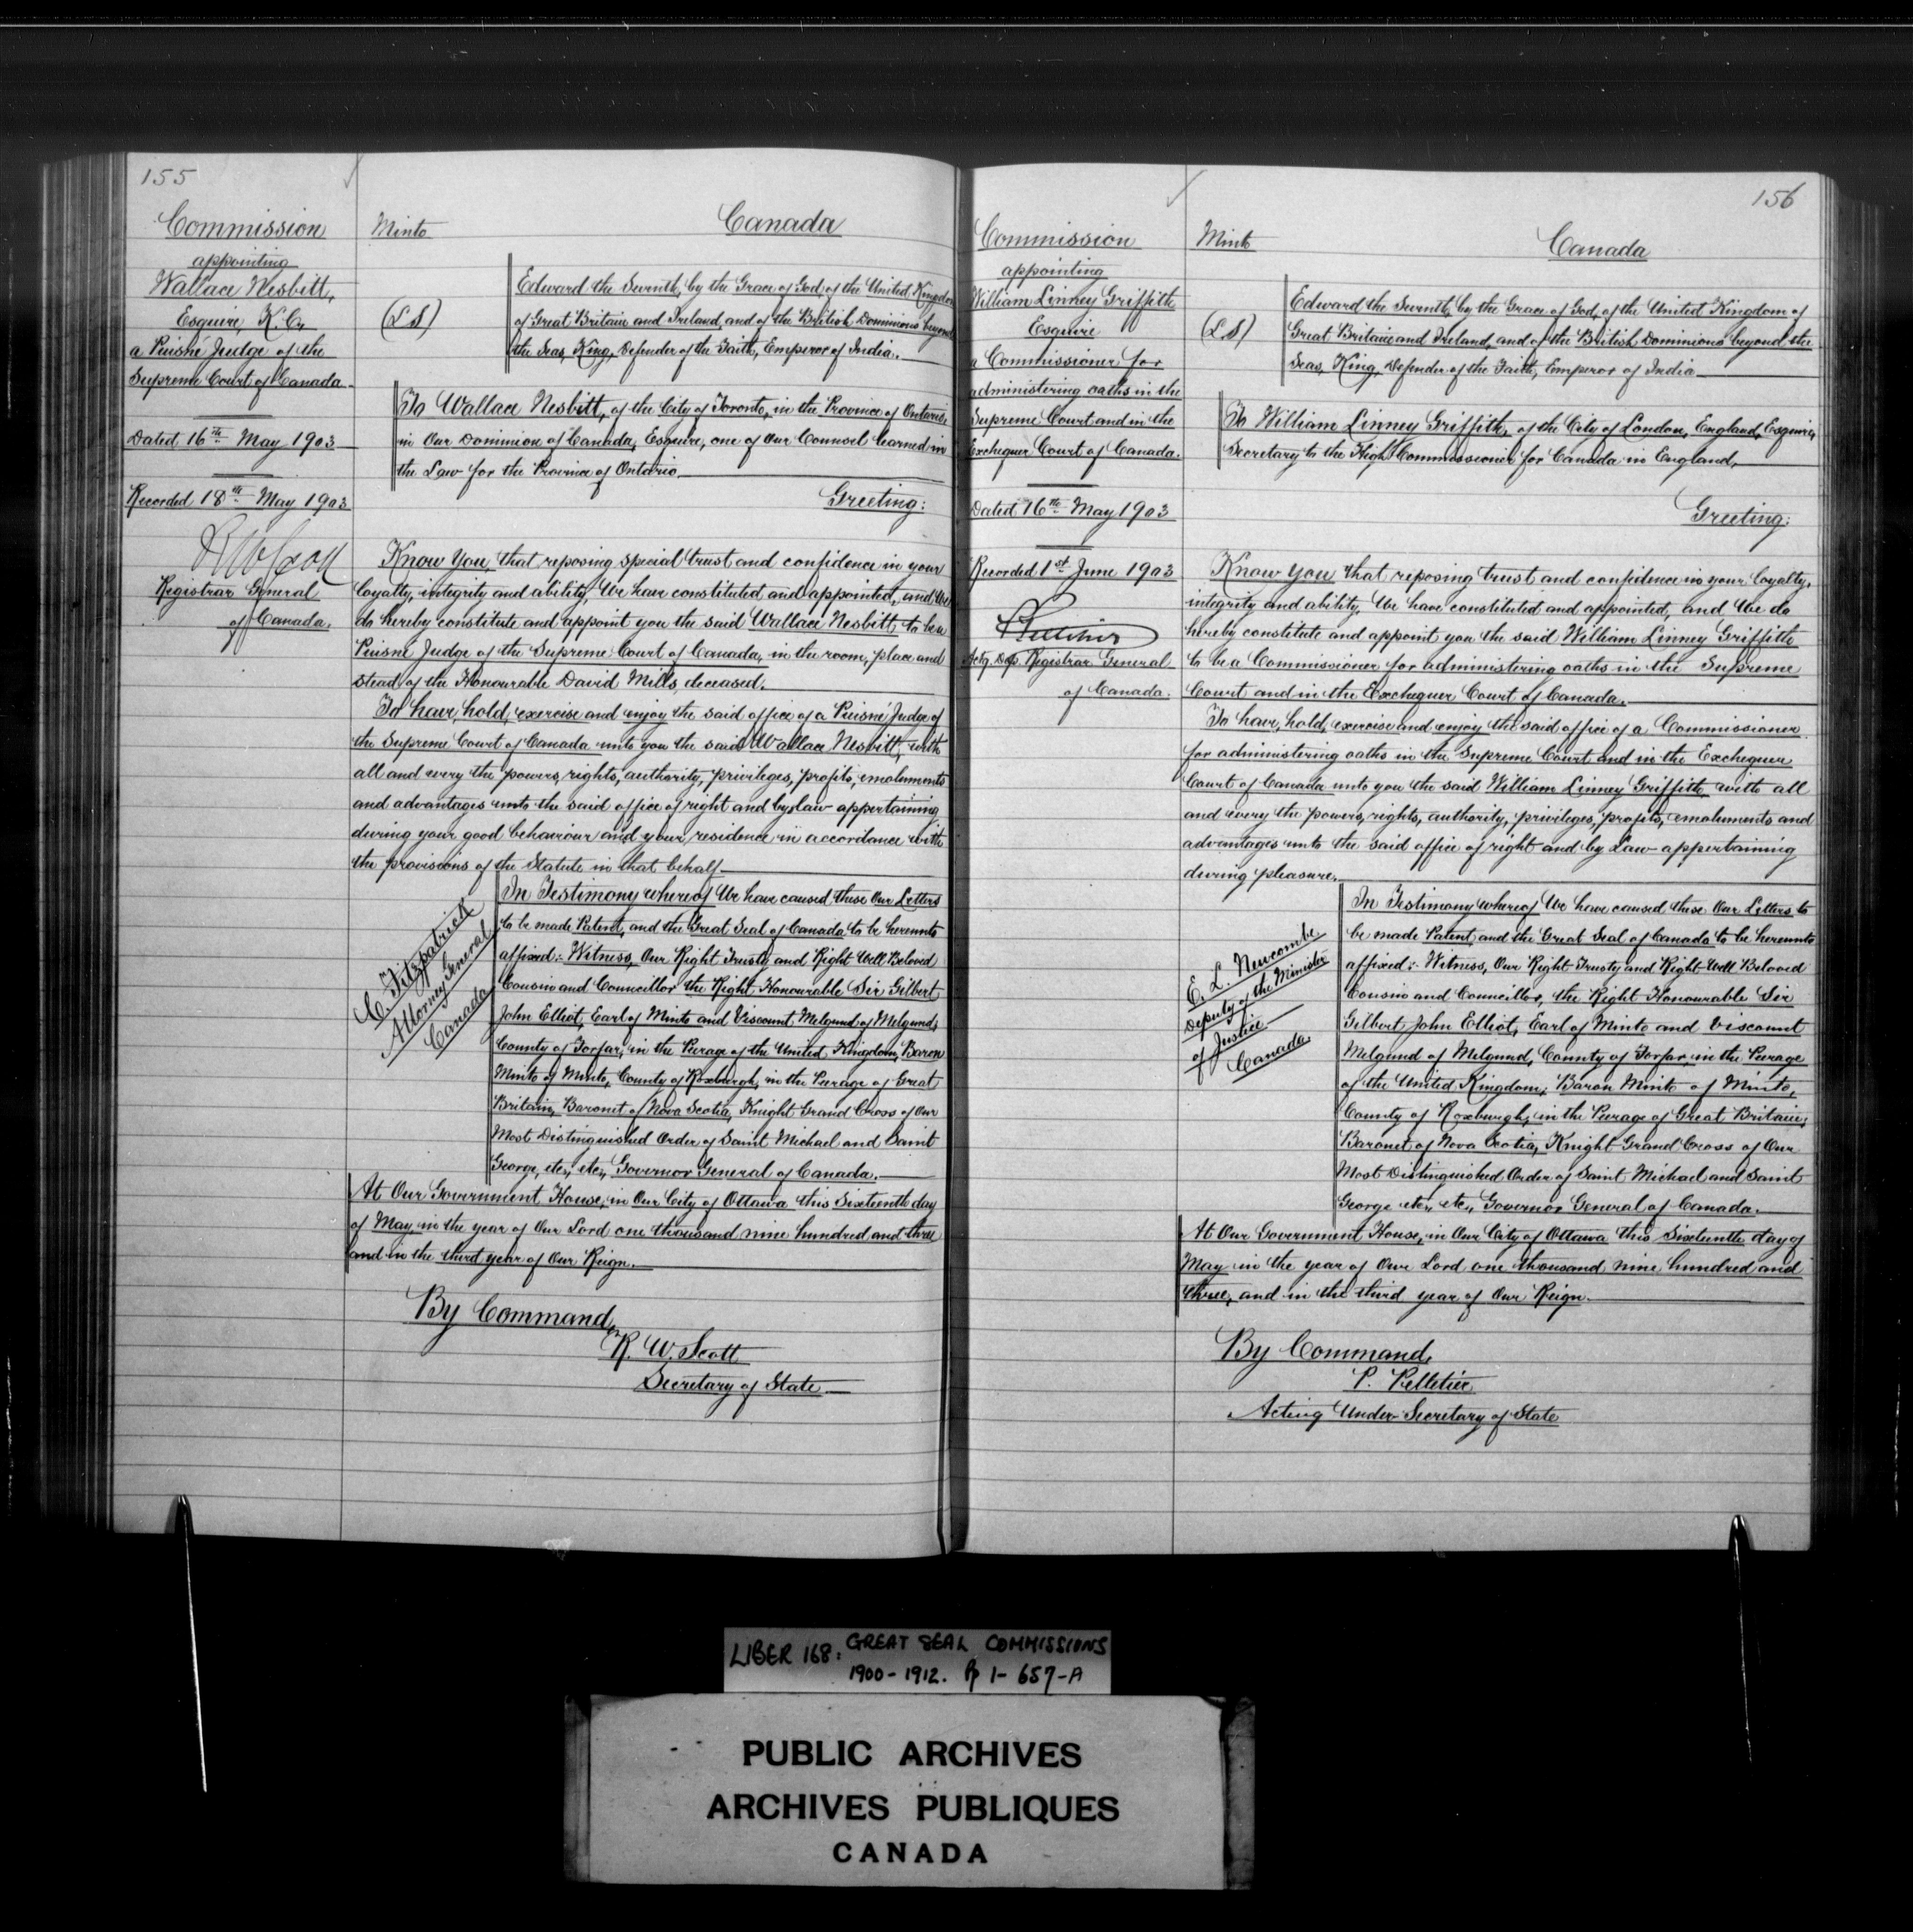 155
Commission
appointing
Wallace Nesbitt,
Esquire, K.C.,
a Puisné Judge of the
Supreme Court of Canada.
Dated 16th May 1903
Recorded 18th May 1903
R W Scott
Registrar General
of Canada.
Minto
Canada
(L.S)
Edward the Seventh, by the Grace of God, of the United Kingdom
of Great Britain and Ireland, and of the British Dominions beyond
the Seas, King, Defender of the Faith, Emperor of India.
To Wallace Nesbitt, of the City of Toronto, in the Province of Ontario,
in Our Dominion of Canada, Esquire, one of Our Counsel learned in
the Law for the Province of Ontario
Greeting:
Know You, that reposing special trust and confidence in your
loyalty, integrity and ability, We have constituted and appointed, and We
do hereby constitute and appoint you the said Wallace Nesbitt to be a
Puisné Judge of the Supreme Court of Canada, in the room, place and
stead of the Honourable David Mills, deceased.
To have, hold, exercise and enjoy the said office of a Puisné Judge of
the Supreme Court of Canada unto you the said Wallace Nesbitt, with
all and every the powers, rights, authority, privileges, profits, emoluments
and advantages unto the said office of right and by law appertaining
during your good behaviour and your residence in accordance with
the provisions of the Statute in that behalf.
C. Fitzpatrick
Attorney General
Canada
In Testimony whereof We have caused these Our Letters
to be made Patent, and the Great Seal of Canada to be hereunto
affixed: Witness, Our Right Trusty and Right Well Beloved
Cousin and Councillor the Right Honourable Sir Gilbert
John Elliot, Earl of Minto and Viscount Melgund of Melgund,
County of Forfar, in the Peerage of the United Kingdom, Baron
Minto of Minto, County of Roxburgh, in the Peerage of Great
Britain, Baronet of Nova Scotia, Knight Grand Cross of Our
Most Distinguished Order of Saint Michael and Saint
George, etc., etc., Governor General of Canada.
At Our Government House, in Our City of Ottawa this Sixteenth day
of May, in the year of Our Lord one thousand nine hundred and three
and in the third year of Our Reign.
By Command,
R. W. Scott
Secretary of State
156
Commission
appointing
William Linney Griffith
Esquire
a Commissioner for
administering oaths in the
Supreme Court and in the
Exchequer Court of Canada.
Dated 16th May 1903
Recorded 1st June 1903
P Pelletier
Actg. Dep. Registrar General
of Canada.
Minto
Canada
(L.S)
Edward the Seventh, by the Grace of God, of the United Kingdom of
Great Britain and Ireland, and of the British Dominions beyond the
Seas, King, Defender of the Faith, Emperor of India
To William Linney Griffith, of the City of London, England, Esquire,
Secretary to the High Commissioner for Canada in England,
Greeting:
Know You that reposing trust and confidence in your loyalty,
integrity and ability, We have constituted and appointed, and We do
hereby constitute and appoint you the said William Linney Griffith
to be a Commissioner for administering oaths in the Supreme
Court and in the Exchequer Court of Canada.
To have, hold, exercise and enjoy the said office of a Commissioner
for administering oaths in the Supreme Court and in the Exchequer
Court of Canada unto you the said William Linney Griffith, with all
and every the powers, rights, authority, privileges, profits, emoluments and
advantages unto the said office of right and by Law appertaining
during pleasure.
E. L. Newcombe
Deputy of the Minister
of Justice
Canada
In Testimony whereof We have caused these Our Letters to
be made Patent, and the Great Seal of Canada to be hereunto
affixed: Witness, Our Right Trusty and Right Well Beloved
Cousin and Councillor, the Right Honourable Sir
Gilbert John Elliot, Earl of Minto and Viscount
Melgund of Melgund, County of Forfar, in the Peerage
of the United Kingdom, Baron Minto of Minto,
County of Roxburgh, in the Peerage of Great Britain,
Baronet of Nova Scotia, Knight Grand Cross of Our
Most Distinguished Order of Saint Michael and Saint
George etc., etc., Governor General of Canada.
At Our Government House, in Our City of Ottawa this Sixteenth day of
May in the year of Our Lord one thousand nine hundred and
three, and in the third year of Our Reign.
By Command,
P. Pelletier
Acting Under-Secretary of State
LIBER 168: GREAT SEAL COMMISSIONS
1900-1912. Pp 1-657-A
PUBLIC ARCHIVES
ARCHIVES PUBLIQUES
CANADA